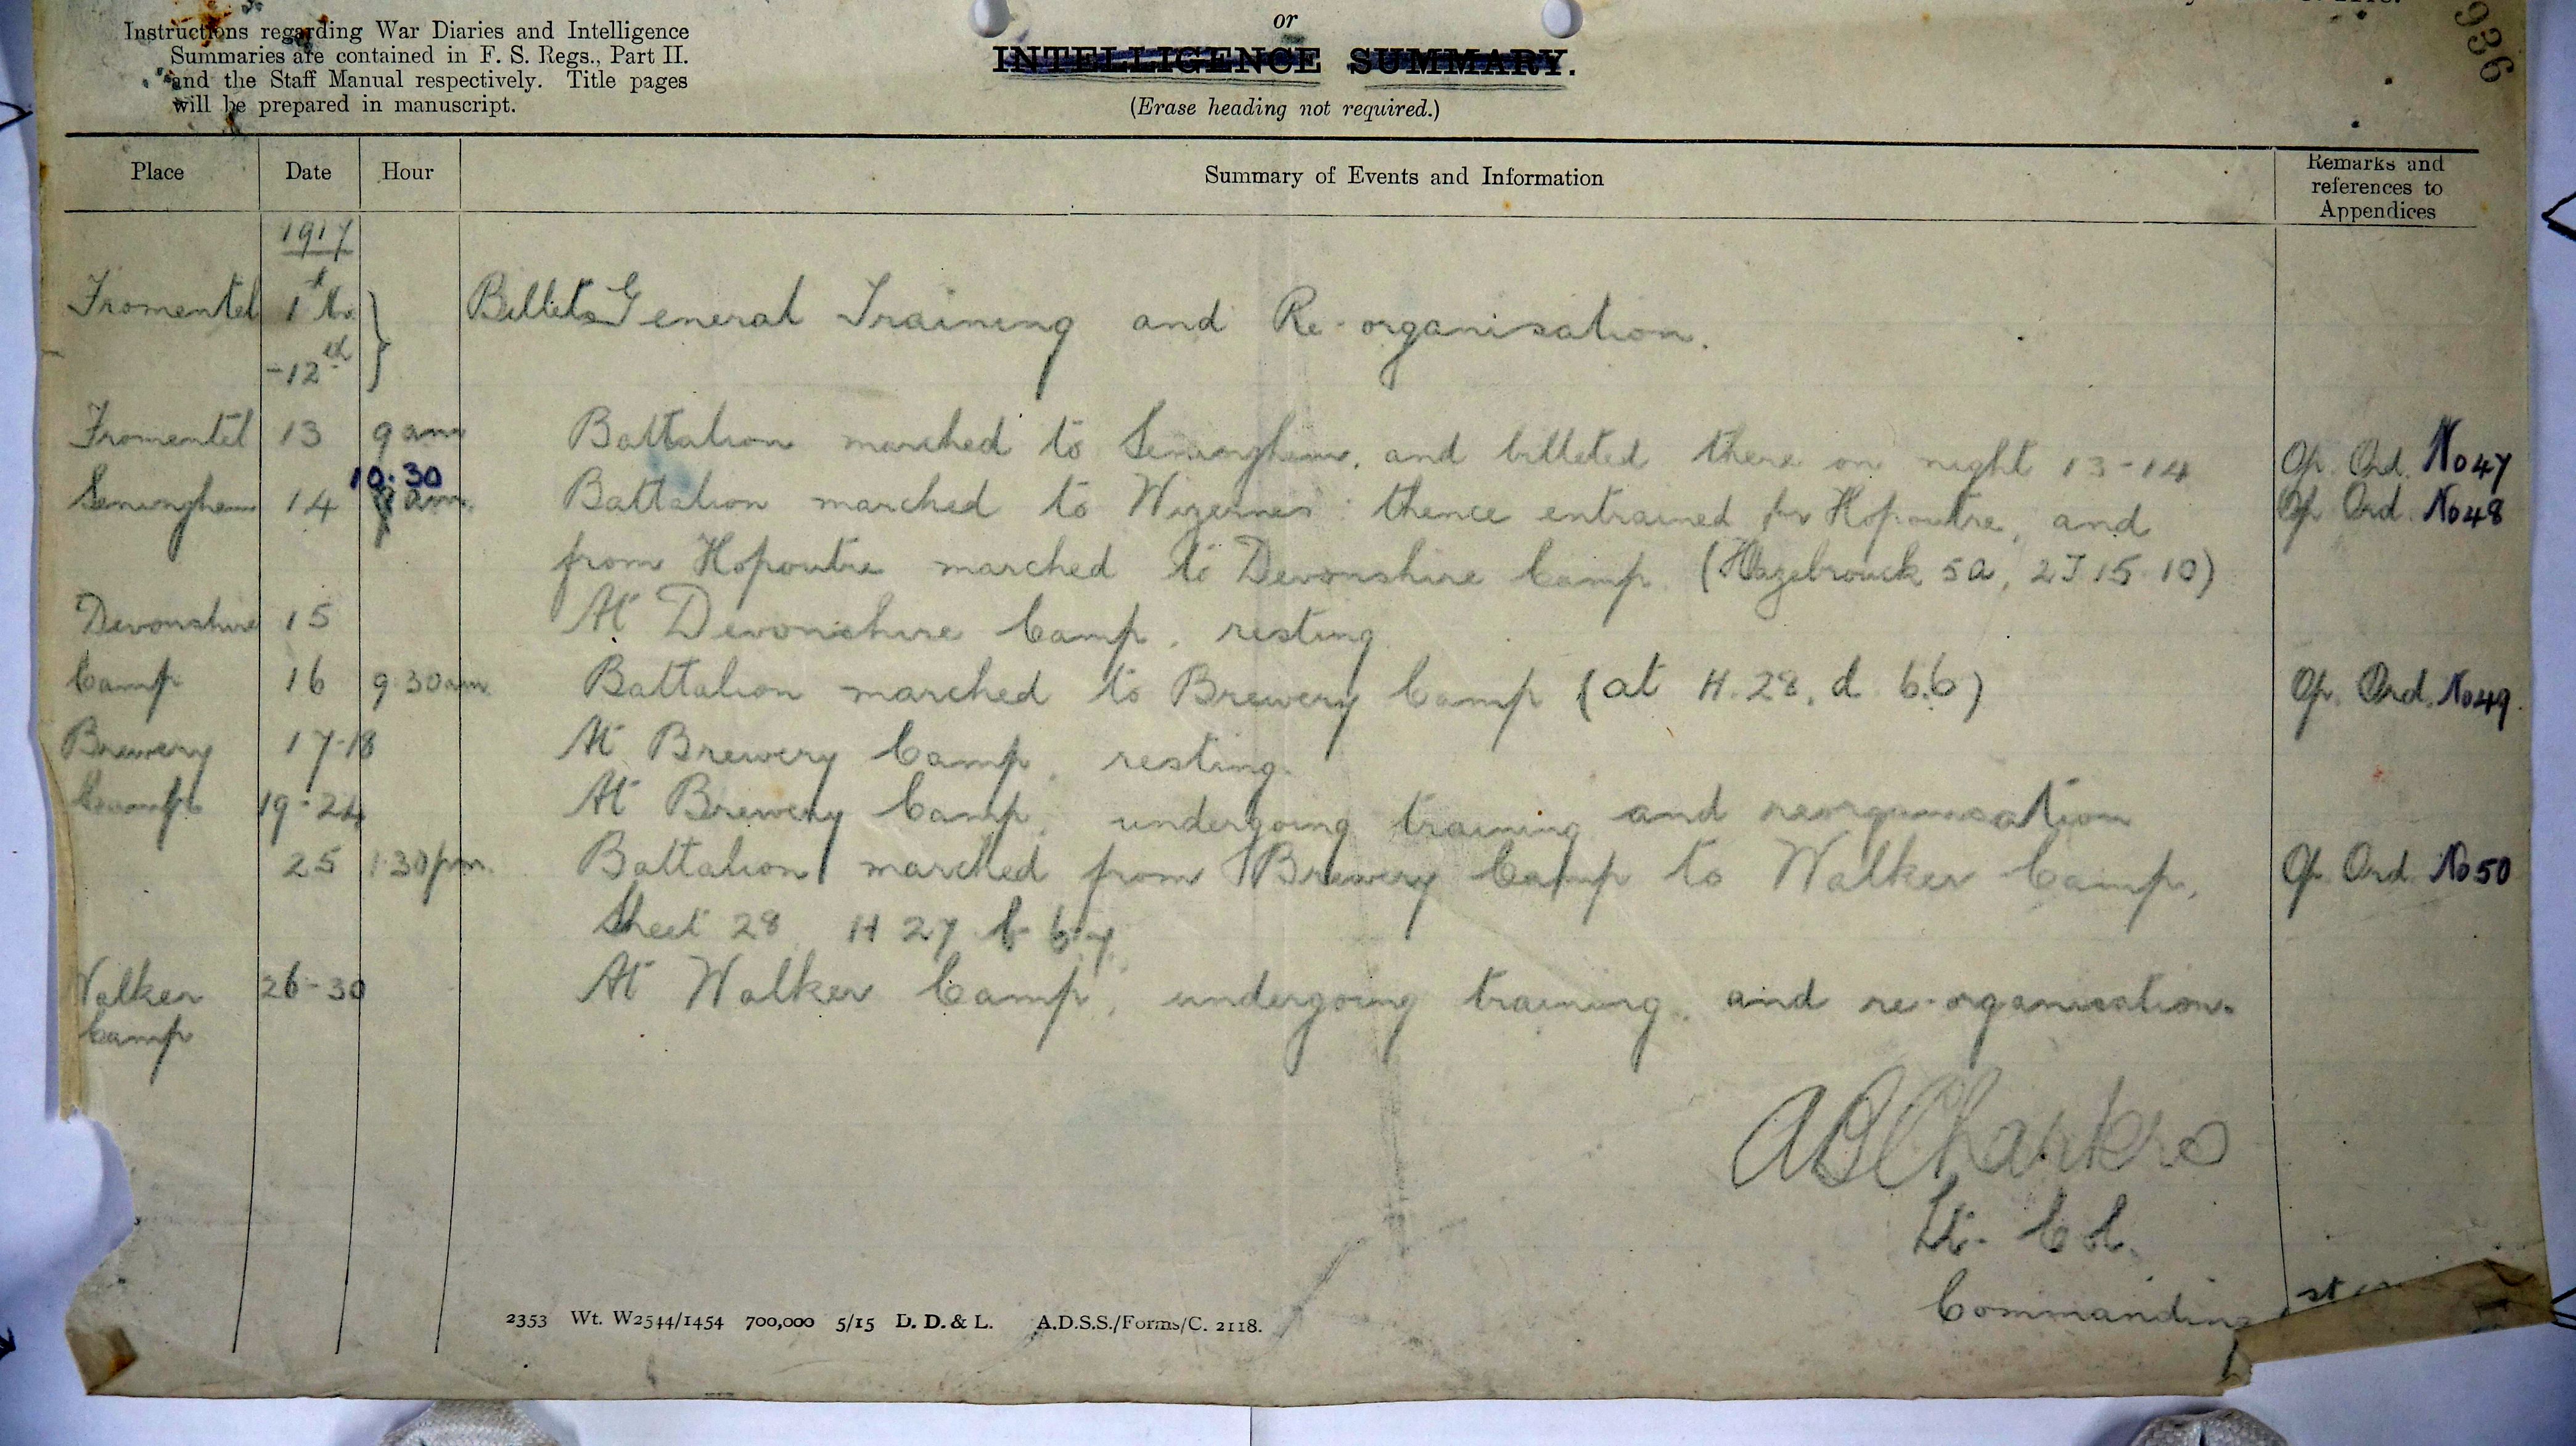 Instructions regarding War Diaries and Intelligence
Summaries are contained in F. S. Regs., Part II.
and the Staff Manual respectively. Title pages
will be prepared in manuscript.
or
INTELLIGENCE SUMMARY.
(Erase heading not required.)
936
Place Date Hour Summary of Events and Information Remarks and references to Appendices
1917
Fromentel 1st to Billets General Training and Re-organisation.
-12th
Fromentel 13 9 am Battalion marched to Seninghem, and billeted there on night 13-14 Op. Ord. No 47
Seninghem 14 10.30 am. Battalion marched to Wizernes: thence entrained for Hopoutre, and Op. Ord. No 48
from Hopoutre marched to Devonshire Camp. (Hazebrouck 5a, 2J 15.10)
Devonshire 15 At Devonshire Camp. resting.
Camp 16 9.30am. Battalion marched to Brewery Camp (at H.28.d 6.6) Op. Ord. No 49.
Brewery 17-18 At Brewery Camp. resting.
Camp 19-24 At Brewery Camp. undergoing training and reorganisation
25 1.30pm. Battalion marched from Brewery Camp to Walker Camp, Op. Ord. No 50
Sheet 28 H 27 b 6.7.
Walker 26-30 At Walker Camp, undergoing training and re-organisation.
Camp
Lt. Col.
Commanding
2353 Wt. W2544/1454 700,000 5/15 D. D. & L. A.D.S.S./Forms/C. 2118.